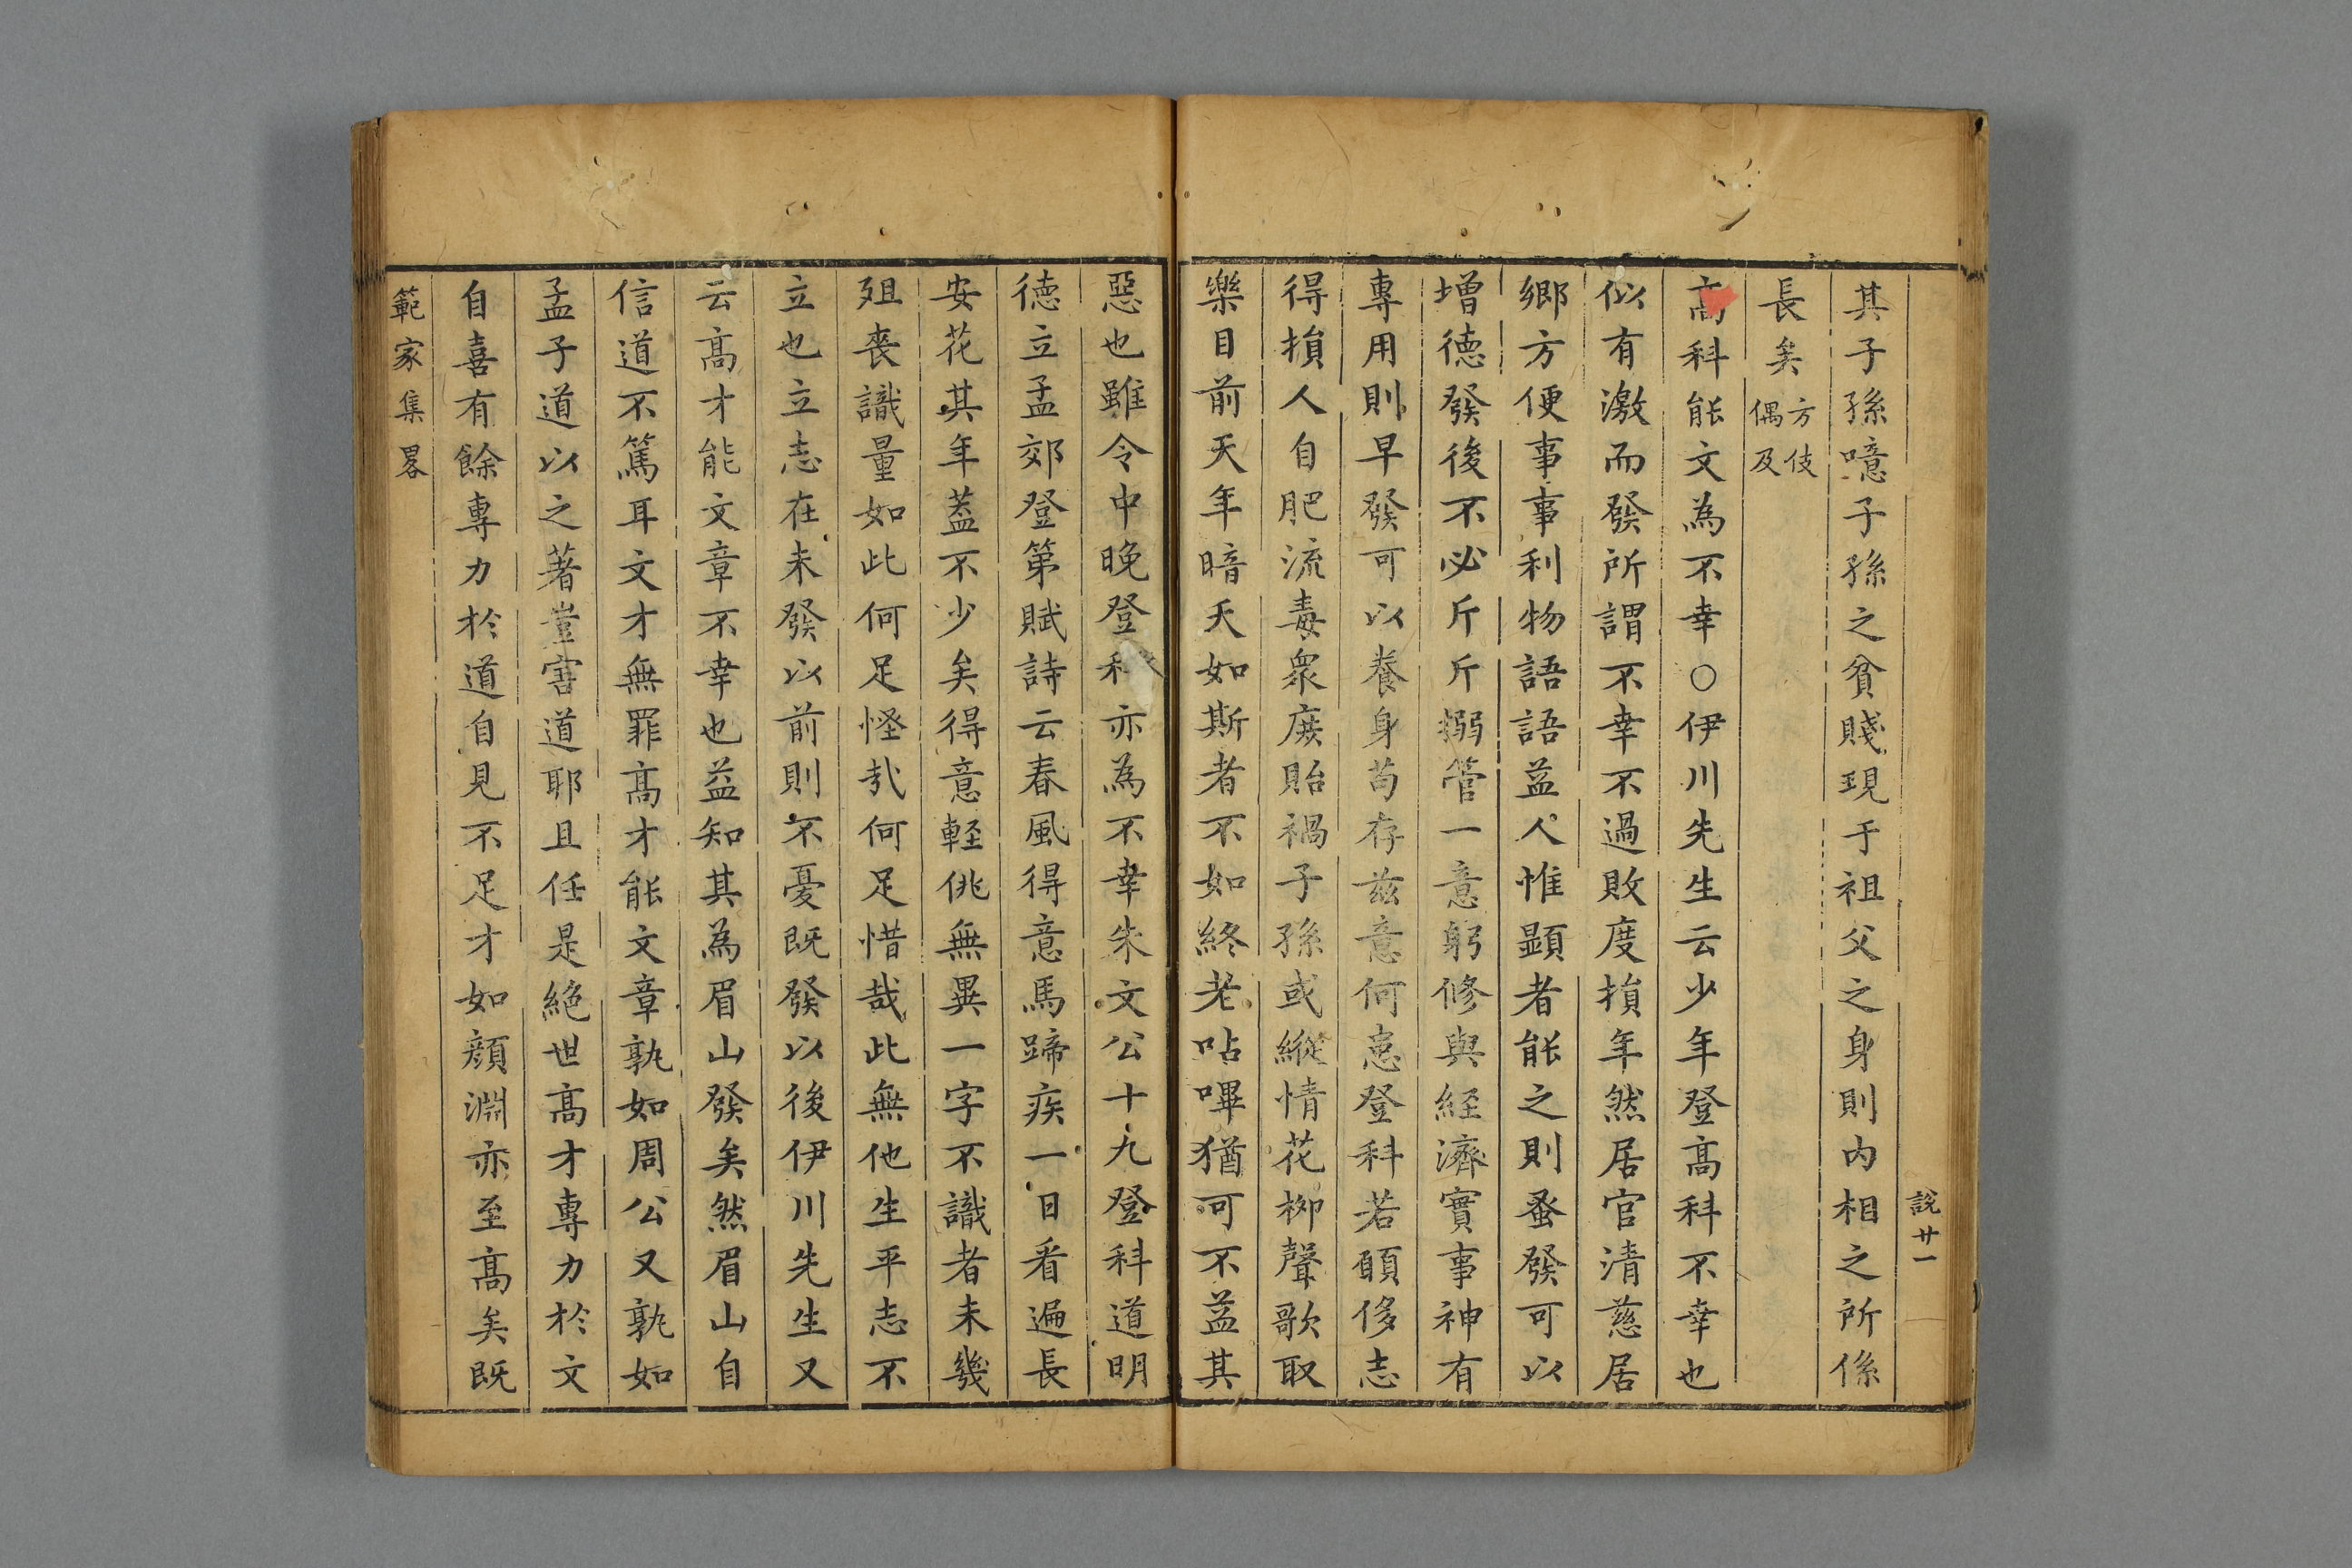 說廿一
其子孫噫子孫之貧賤現于祖父之身則內相之所係
長矣方伎偶及
高科能文為不幸○伊川先生云少年登高科不幸也
似有激而發所謂不幸不過敗度損年然居官清慈居
鄉方便事事利物語語益人惟顯者能之則蚤發可以
增德發後不必斤斤搦管一意躬修與経濟實事神有
專用則早發可以養身苟存茲意何患登科若頤侈志
得損人自肥流毒衆庻貽禍子孫或縱情花柳聲歌取
樂目前天年暗夭如斯者不如終老呫嗶猶可不益其
惡也雖令中晚登科亦為不幸朱文公十九登科道明
徳立孟郊登第賦詩云春風得意馬蹄疾一日看遍長
安花其年蓋不少矣得意輕佻無異一字不識者未幾
殂喪識量如此何足怪哉何足惜哉此無他生平志不
立也立志在未發以前則不憂既發以後伊川先生又
云高才能文章不幸也益知其為眉山發矣然眉山自
信道不篤耳文才無罪高才能文章孰如周公又孰如
孟子道以之著豈害道耶且任是絕世高才專力於文
自喜有餘專力於道自見不足才如顏淵亦至高矣既
範家集畧